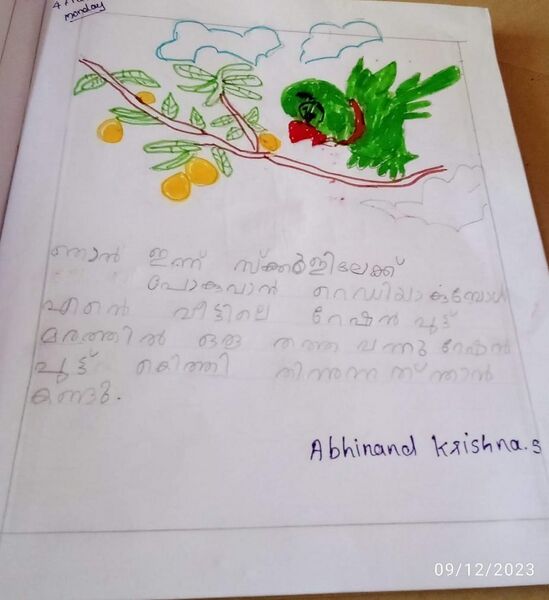 monday
ഞാൻ ഇന്ന് സ്ക്കൂളിലേക്ക്
പോകുവാൻ റെഡിയാകുമ്പോൾ
എൻെ വീട്ടിലെ റേഷൻ ഫ്രൂട്ട്
മരത്തിൽ ഒരു തത്ത വന്നു റേഷൻ
ഫ്രൂട്ട് കൊത്തി തിന്നുന്നത് ഞാൻ
കണ്ടു.
Abhinand Krishna.s
09/12/2023